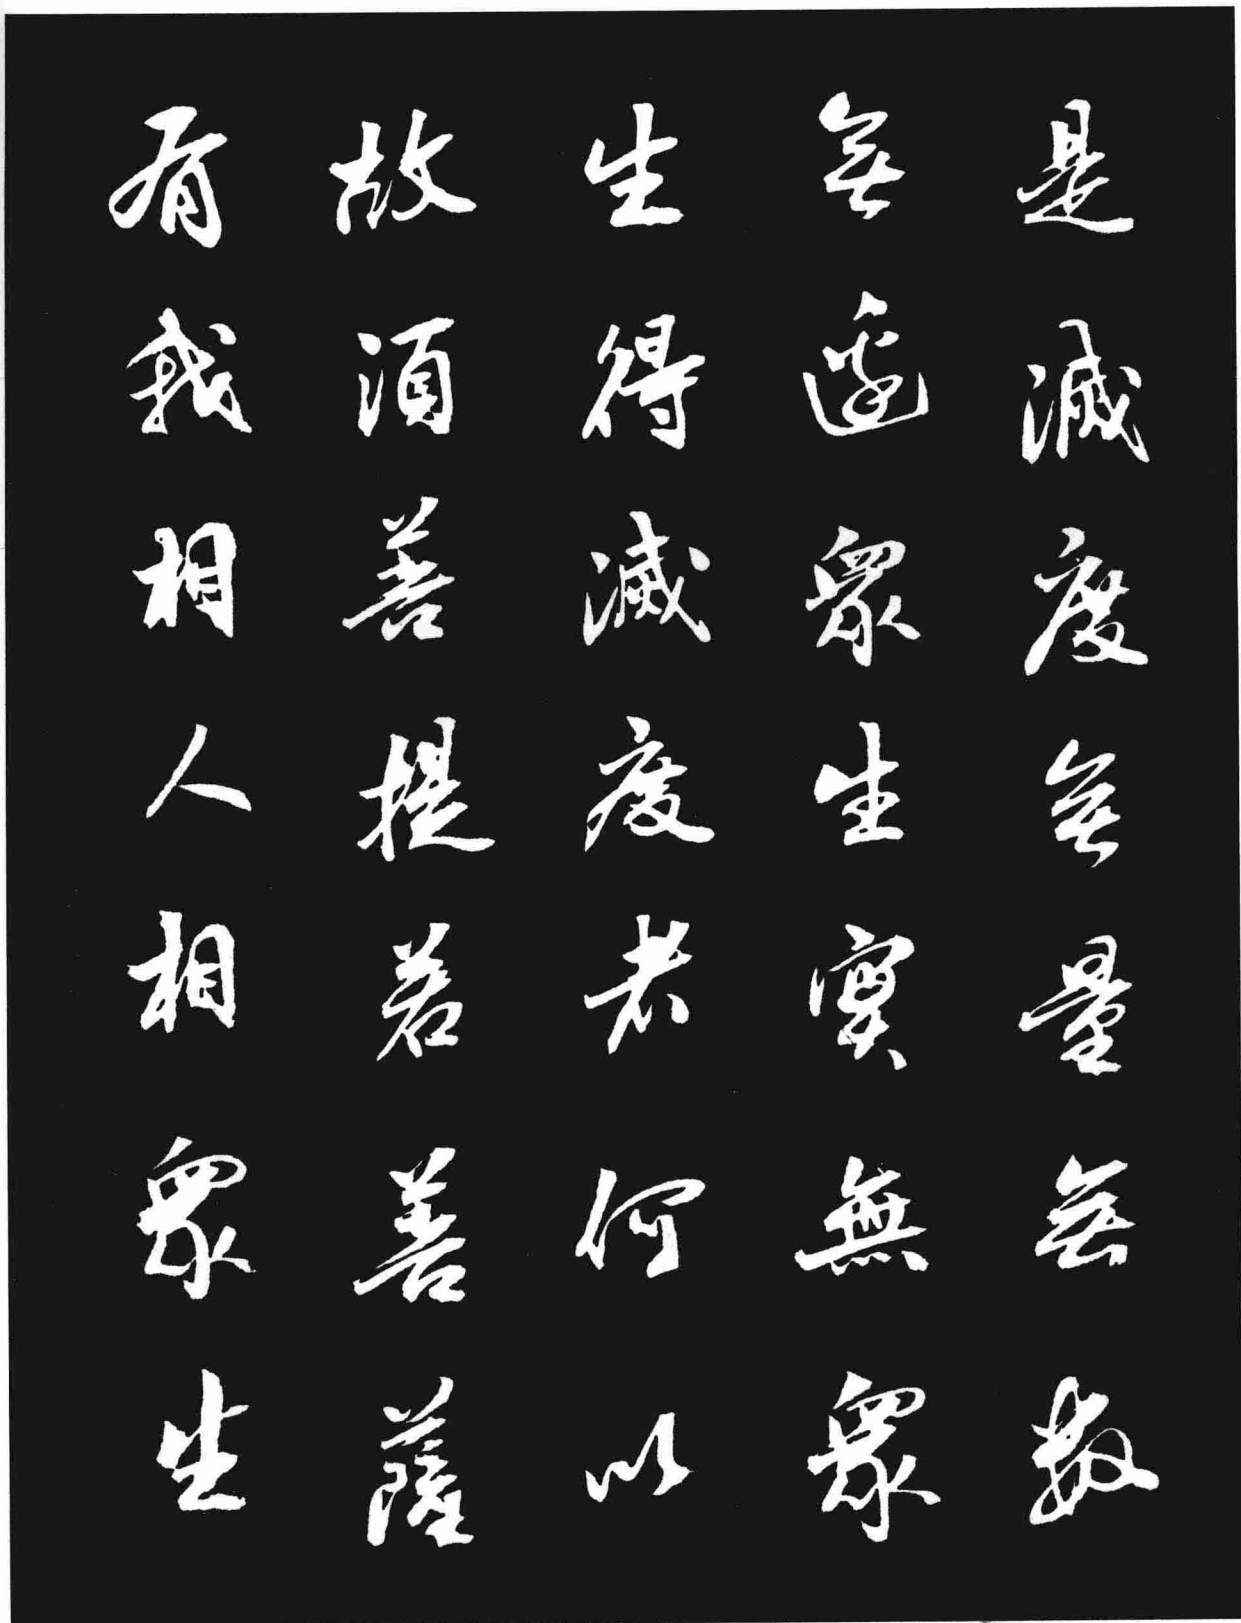 是滅度無量無數
無邊眾生實無眾
生得滅度者何以
故須菩提若菩薩
有我相人相眾生